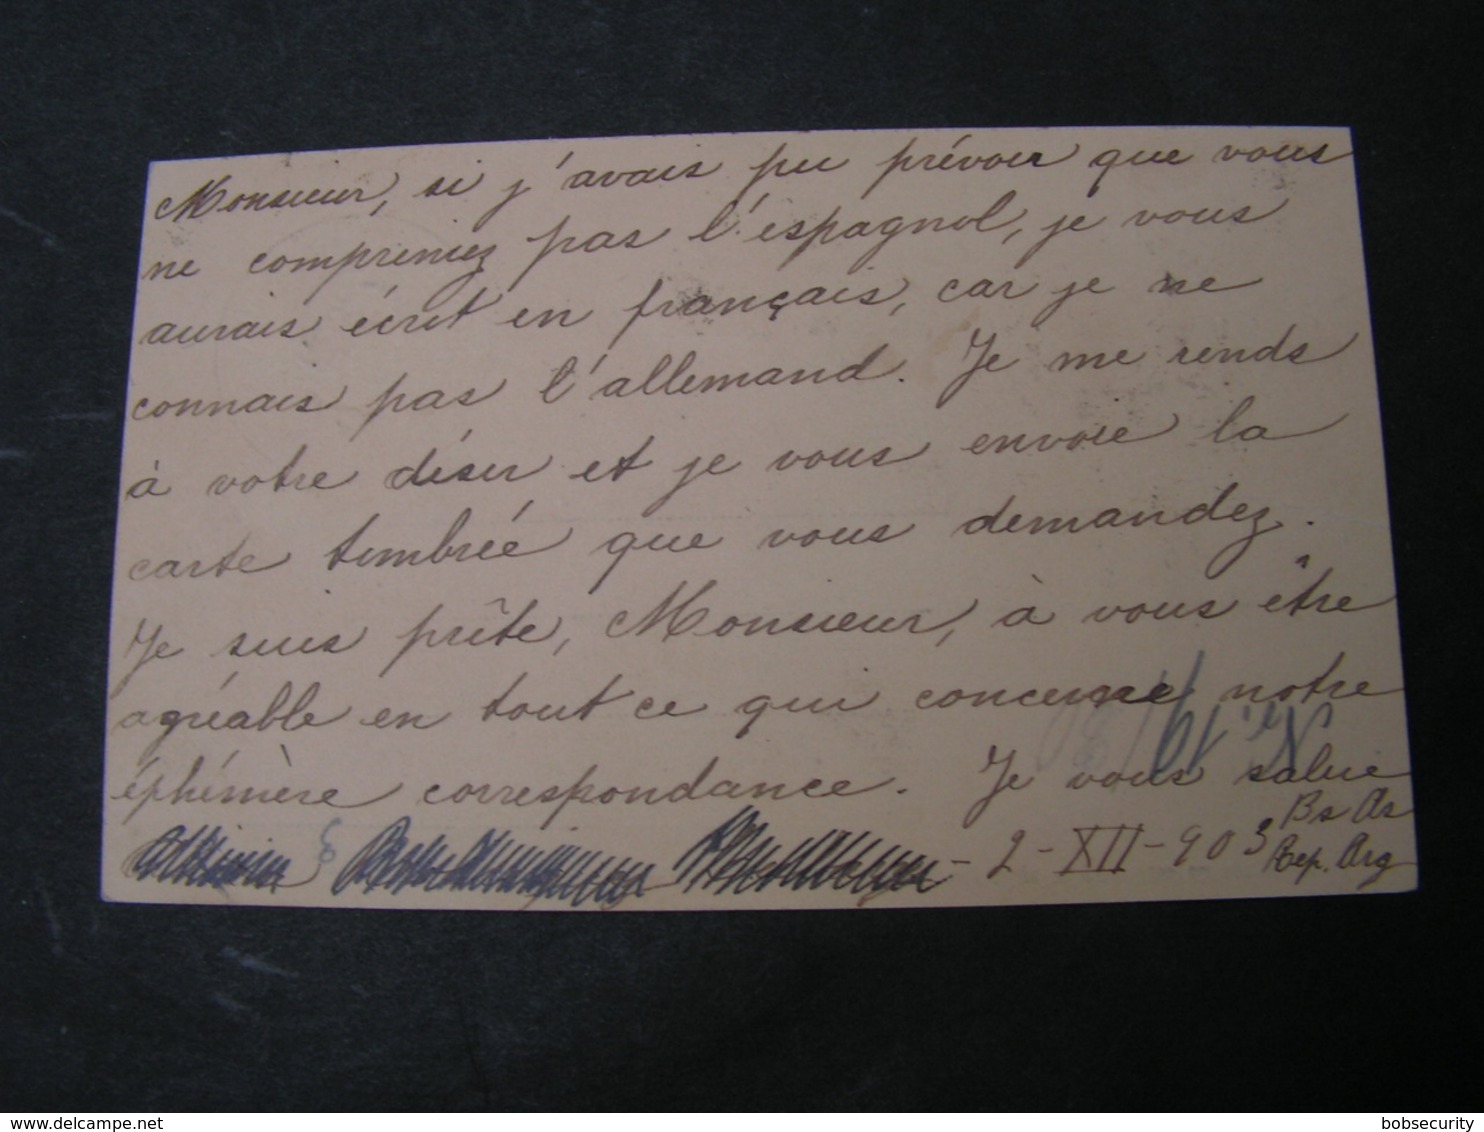 Monsieur, si j'avais pu prévoir que vous
ne compreniez pas l'espagnol, je vous
aurais écrit en français, car je ne
connais pas l'allemand. Je me rends
à votre désir et je vous envoie la
carte timbrée que vous demandez.
Je suis prête, Monsieur, à vous être
agréable en tout ce qui concerne notre
éphémère correspondance. Je vous salue
- 2 - XII - 903 Bs As
Rep. Arg
delcampe.net
bobsecurity